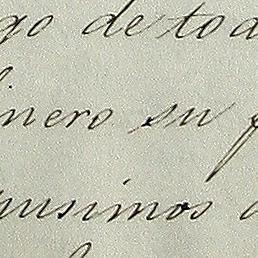 go de tod
inero su
usimos